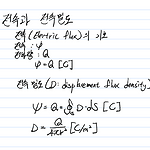 전속과 전속밀도
전속 (Electric flux)의 기호
전속 : ψ
전하량 : Q
ψ = Q [C]
전속 밀도 (D : displacement flux density)
ψ = Q = ∮ D · dS [C]
D = Q / 4πr² [C/m²]